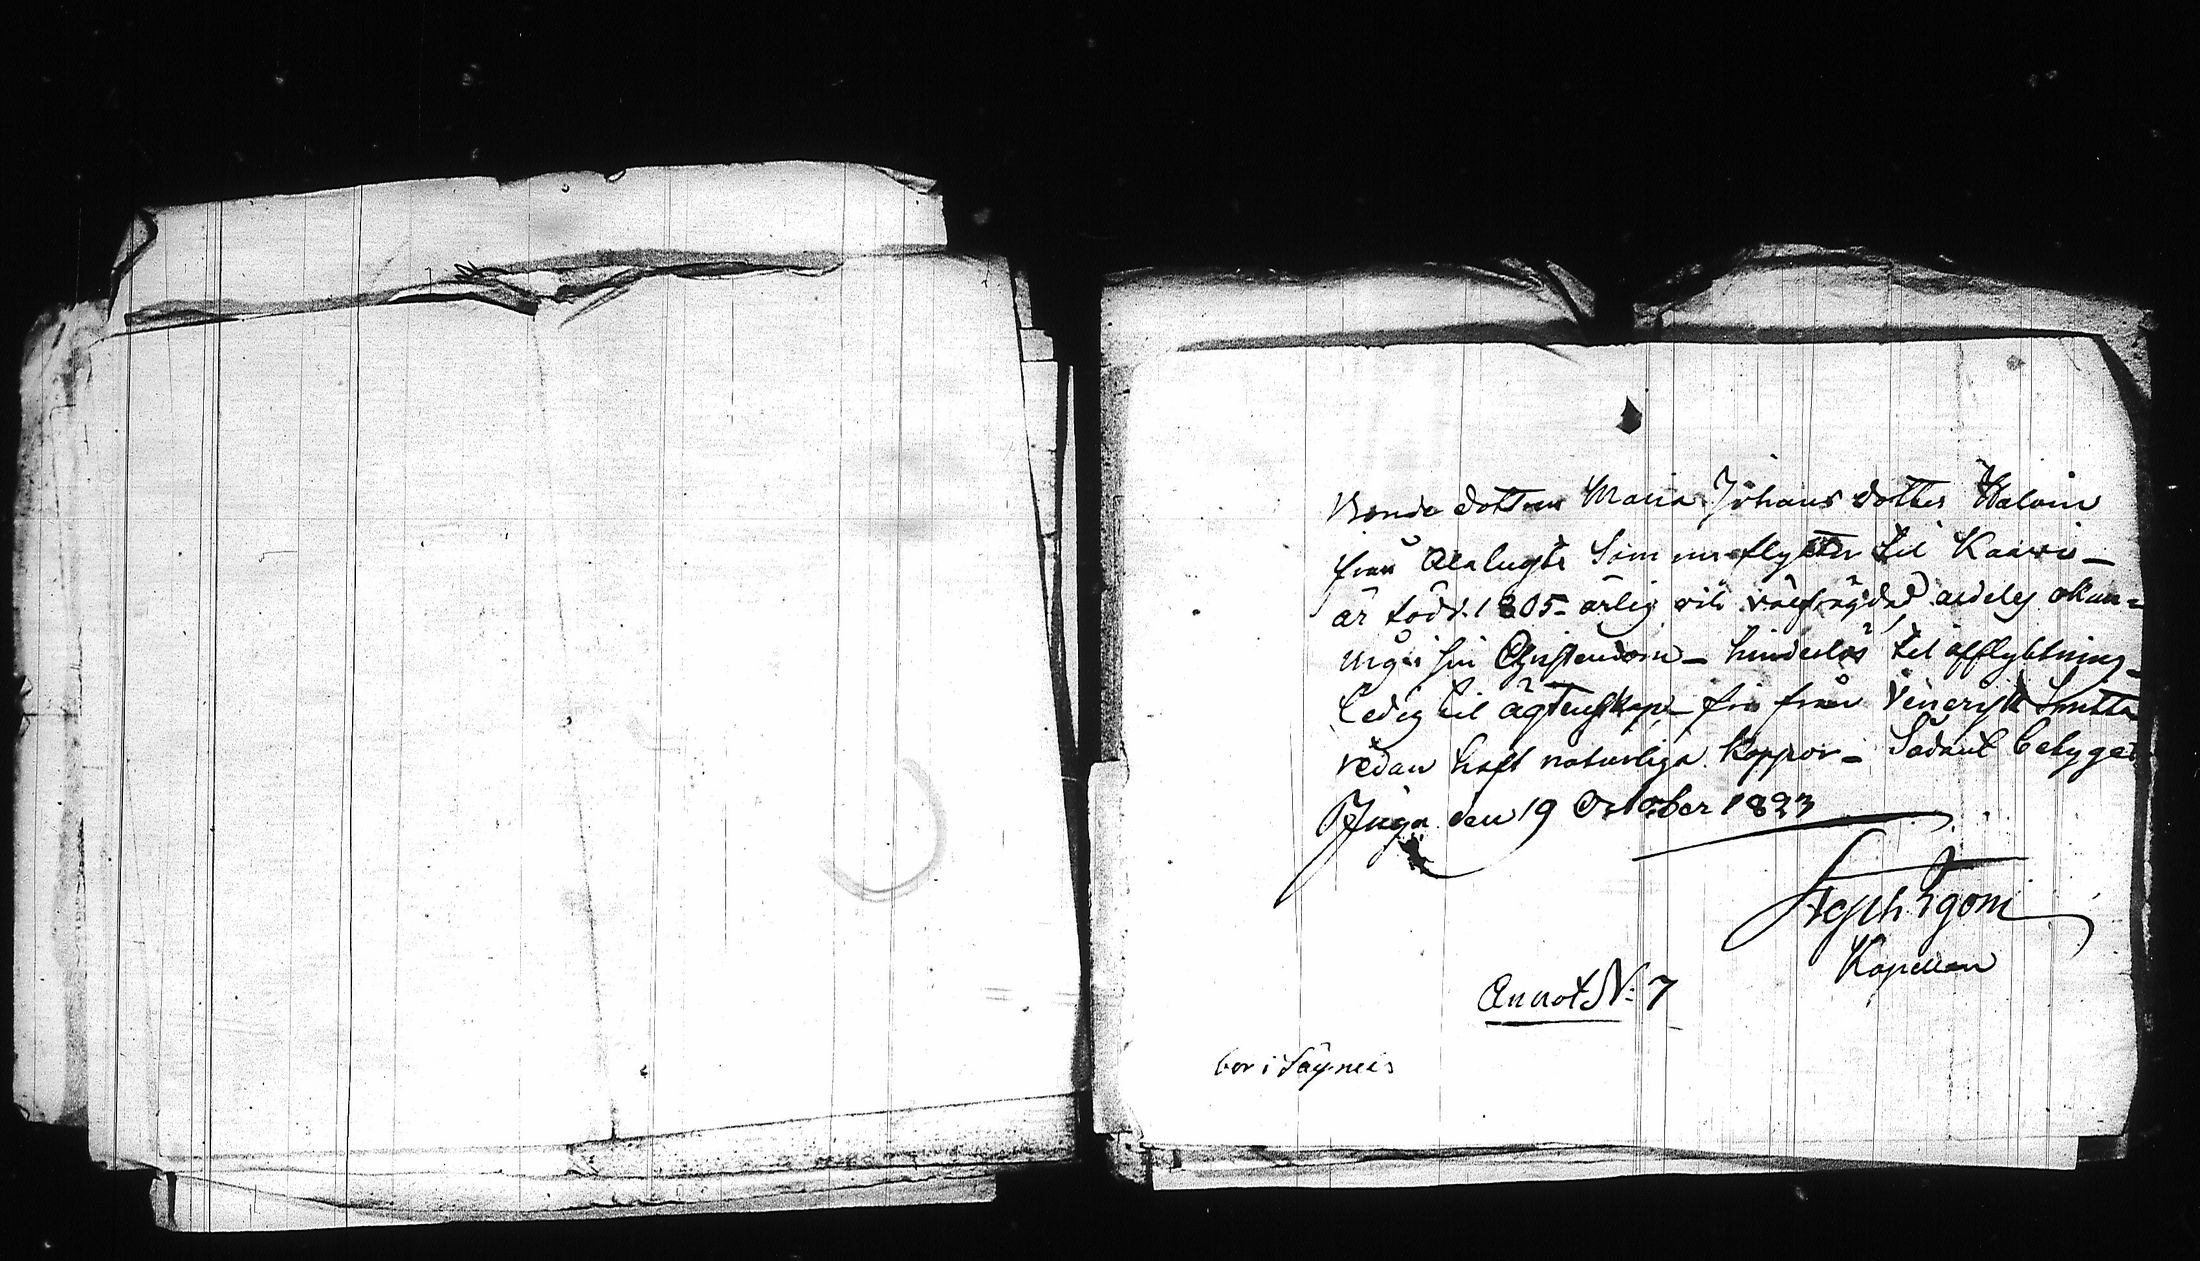 Bonde dottren Maria Johans dotter Halvin
från Alalugta som nu flytter til Kaavi –
är född 1805 – ärlig och aldeles okun=
nig i sin Christendom – hinderlös til afflyttning –
Ledig til ägtenskap – fri från Venerisk Smitta
redan haft naturliga koppor – Sådant betygar
Juga den 19 October 1823
Kapellan
Annot N: 7
bor i Säyneis